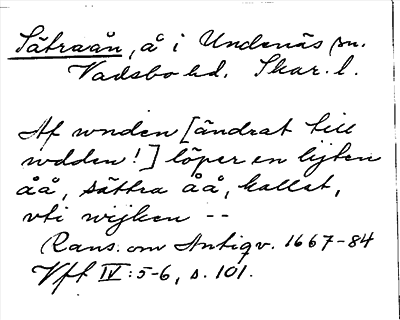 Sätraån, å i Undenäs sn.
Vadsbo hd. Skar. l.
Af wnden [ändrat till
wdden!] löper en lijten
åå, sättra åå, kallat,
vti wijken --
Rans. om Antiqv. 1667-84
Vft IV:5-6, s. 101.